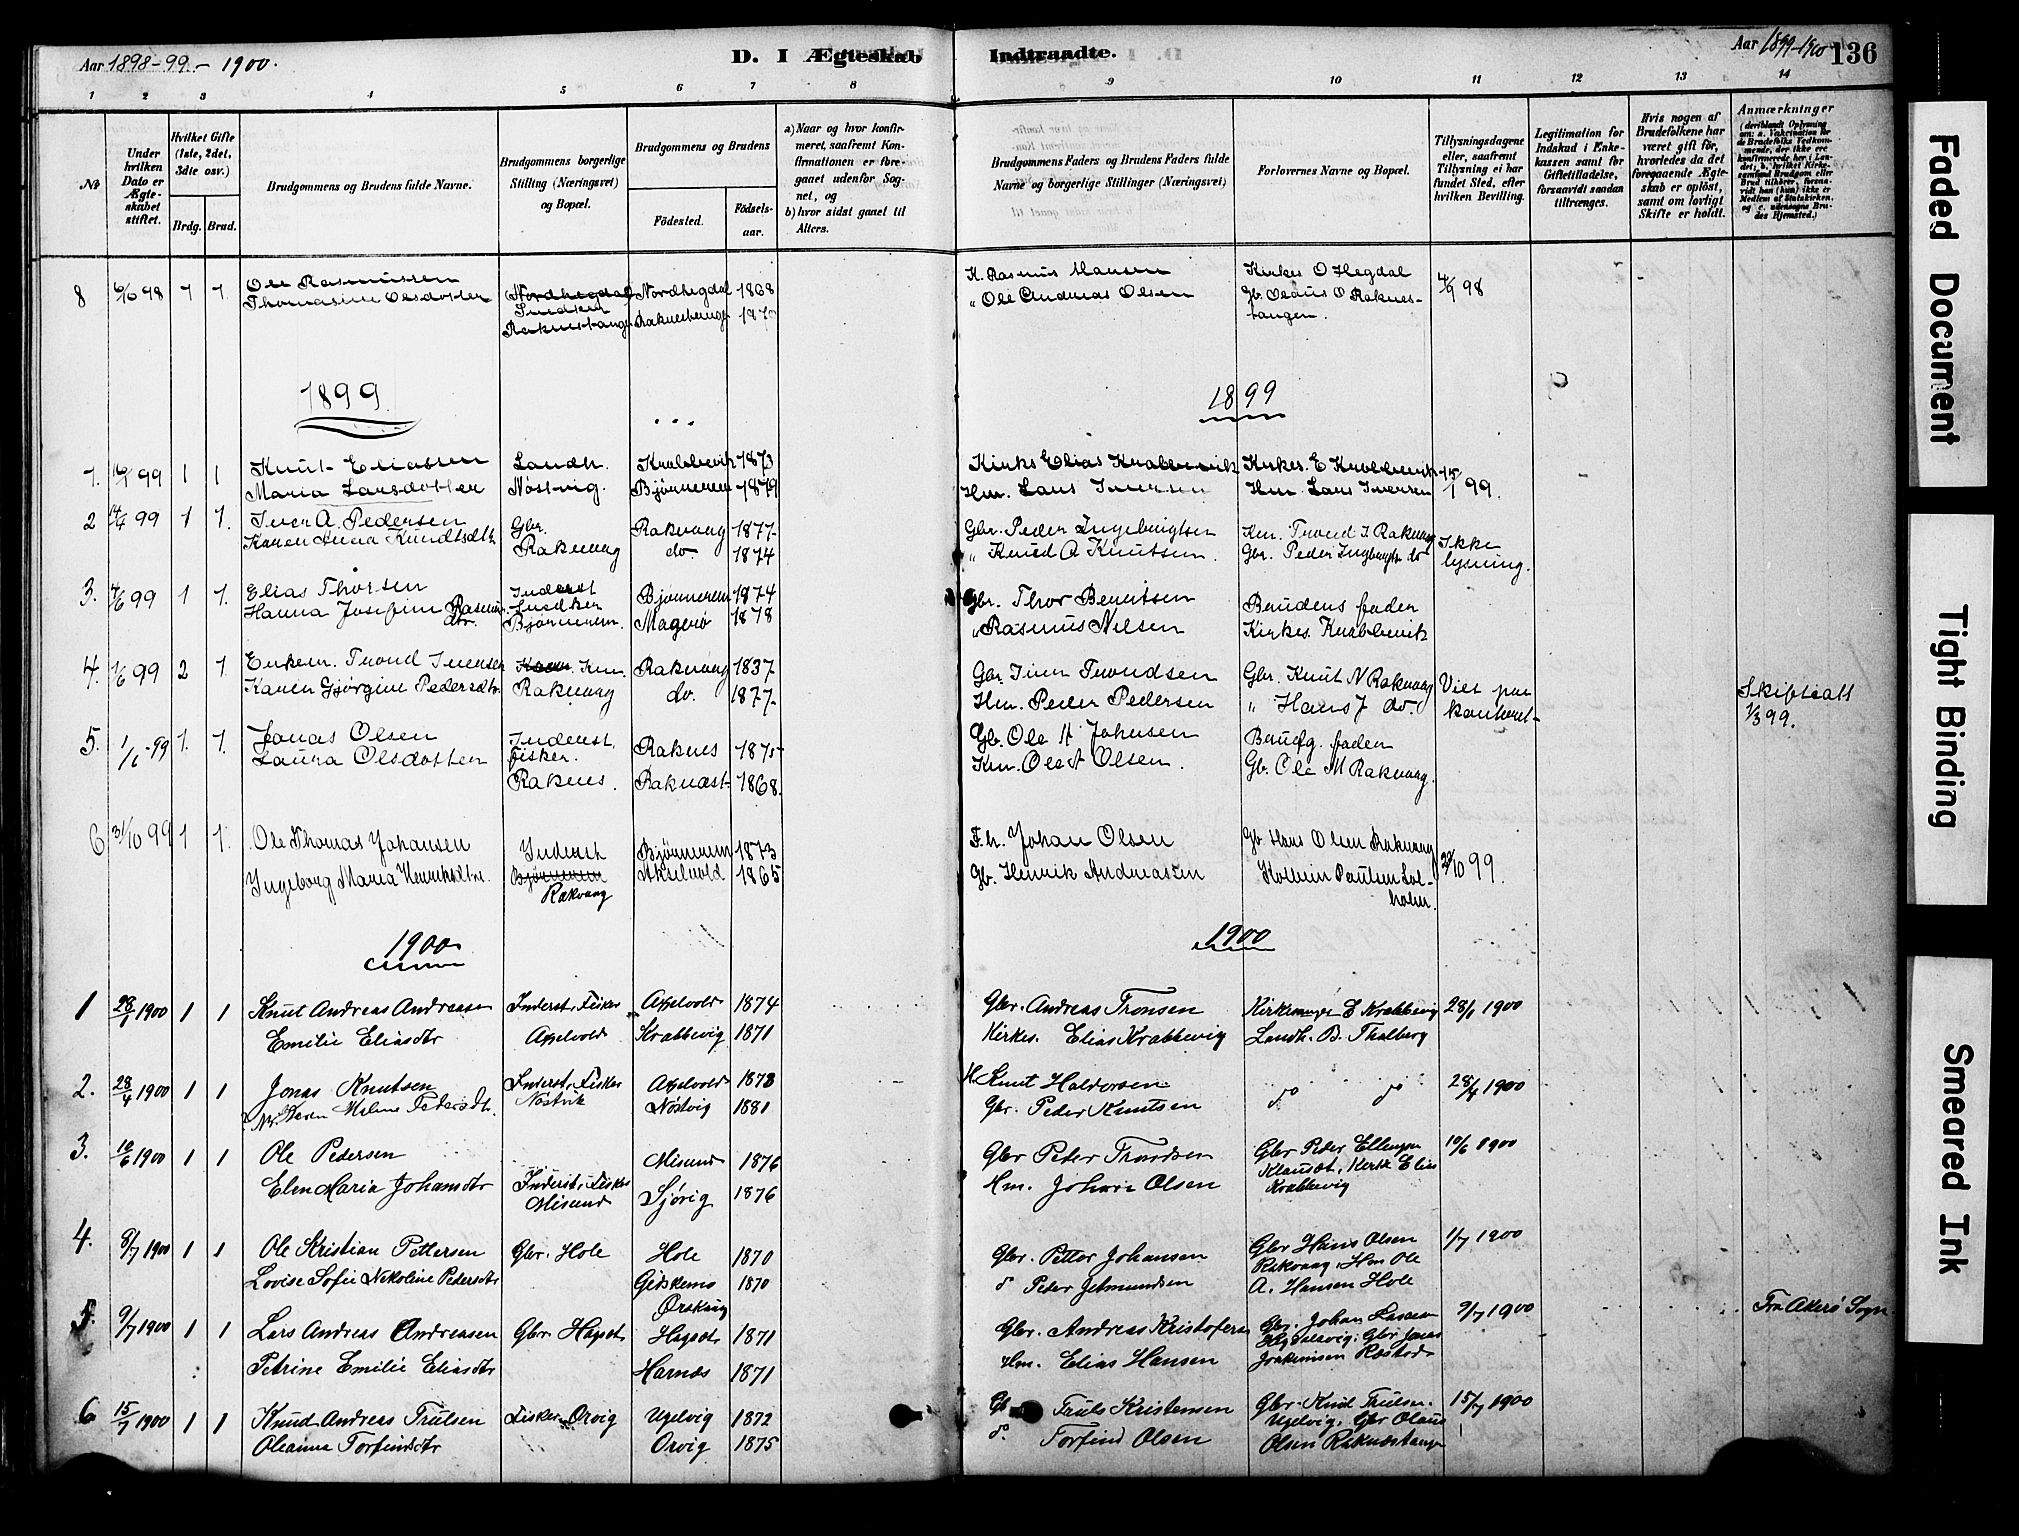 Aar 1898-99 - 1900.
D. I Ægteskab
Indtraadte.
Aar 1899-1900
136
1 2 3 4 5 6 7 8
9 10 11 12 13 14
No
Under hvilken Dato er Ægteskabet stiftet.
Hvilket Gifte (1ste, 2det, 3die osv.)
Brdg. Brud.
Brudgommens og Brudens fulde Navne.
Brudgommens borgerlige Stilling (Næringsvei) og Bopæl.
Brudgommens og Brudens
Födested.
Födselsaar.
a) Naar og hvor konfirmeret, saafremt Konfirmationen er foregaaet udenfor Sognet, og
b) hvor sidst gaaet til Alters.
Brudgommens Faders og Brudens Faders fulde Navne og borgerlige Stillinger (Næringsvei)
Forlovernes Navne og Bopæl.
Tillysningsdagene eller, saafremt Tillysning ei har fundet Sted, efter hvilken Bevilling.
Legitimation for Indskud i Enkekassen samt for Giftetilladelse, forsaavidt saadan tiltrænges.
Hvis nogen af Brudefolkene har været gift för, hvorledes da det foregaaende Ægteskab er oplöst, samt om lovligt Skifte er holdt.
Anmærkninger
8 98 1 1 Ole Rasmussen Nordhegdal Nordhegdal 1868 K. Rasmus Hansen Kirkes O Hegdal 4/9 98
Thomasine Olsdotter Raknestangen Raknestangen " Ole Andreas Olsen Gb. Olaus O Raknes-
tangen.
1899
1899
1. 99 1 1 Knut Eliassen Landh. Krabbevik 1873 Kirks Elias Krabbevik Kirkes. E Krabbevik 15/1 99.
Maria Larsdotter Nøstvig. Bjørnerem 1879 Hm. Lars Iversen Hm Lars Iversen
2 99 1 1. Iver A. Pedersen Gbr. Rakvaag 1877 Gbr. Peder Ingebrigtsen Km. Trond I Rakvaag Ikke
Karen Anna Knudtsdtr Rakvaag do. 1874 " Knud A Knutsen. Gbr. Peder Ingbrigts do lysning.
3. 4/6 99 1 1. Elias Thorsen Inderst Bjørnerem 1874 Gbr. Thor Berntsen Brudens fader
Hanna Josefine Rasmusdtr. Bjørnerem. Magerø 1878 " Rasmus Nilsen Kirkes. Krabbevik
4. 1/6 99 2 1. Enkem. Trond Iversen Km. Rakvaag 1837 Gbr. Iver Trondsen Gbr. Knut N Rakvaag Viet par
Karen Gjørgine Pedersdtr. Rakvaag do. 1877 Hm. Peder Pedersen " Hans J do. Skifteatt 1/3 99.
5. 1/6-99 1. 1. Jonas Olsen Inderst, fisker. Raknes 1875 Gb. Ole H Johnsen Brudg. fader
Laura Olsdotter Raknes. Raknæst 1868. Km. Ole A Olsen. Gb. Ole M Rakvaag.
6 31/10 99 1 1. Ole Thomas Johansen Inderst Bjørnerem 1873 F.h. Johan Olsen Gb Hans Olsen Rakvaag 22/10 99.
Ingeborg Maria Henriksdtr. Bjørnerem Rakvaag Akselvold 1865 Gb. Henrik Andreassen
1900
1900
1 28/1 1900 1 1 Knut Andreas Andreasen Inderst, Fisker Axelvold 1874 Gbr. Andreas Tronsen Kirkesanger E Krabbevig 28/1 1900
Emilie Eliasdtr Axelvold Krabbevig 1871 Kirkes. Elias Krabbevig Landh. B. Thalberg
2. 28/4 1900 1 1 Jonas Knutsen Inderst, Fisker Axelvold 1873 H. Knut Haldorsen do do 28/4 1900
Meline Pedersdtr. Nøstvik Nöstvig 1881 Gbr. Peder Knutsen
3. 10/6 1900 1 1 Ole Pedersen Misund 1876 Gbr Peder Trondsen Gbr Peder Ellingsen 10/6 1900
Elen Maria Johansdtr Inderst, Fisker Misund Sjövig 1876 Hm. Johan Olsen Klauset, Kirk Elias Krabbevig
4. 8/7 1900 1 1 Ole Kristian Pettersen Gbr. Hole Hole 1870 Gbr. Petter Johansen Gbr Hans Olsen 1/7 1900
Lovise Sofie Nikoline Pedersdtr Gidskemo 1870 do Peder Jetmundsen Rakvaag, Hm Ole
Örskoug A. Hansen Hole
5. 9/7 1900 1 1 Lars Andreas Andreasen Gbr. Hagset Hagset 1871 Gbr. Andreas Kristofersen Gbr. Johan Lassen 9/7 1900 Fra Akerö Sogn.
Petrine Emilie Eliasdtr Harnæs 1871 Hm. Elias Hansen Gbr Jonas Joakimsen Røstad
6 15/7 1900 1 1 Knud Andreas Trulsen Fisker Orvig Ugelvig 1872 Gb Truls Kristensen Gbr. Knud Trulsen. 15/7 1900
Oleanna Torfinsdtr Orvig 1875 do. Torfind Olsen Ugelvig, Gbr Olaus
Olsen Raknæstange
Faded Document
Tight Binding
Smeared Ink